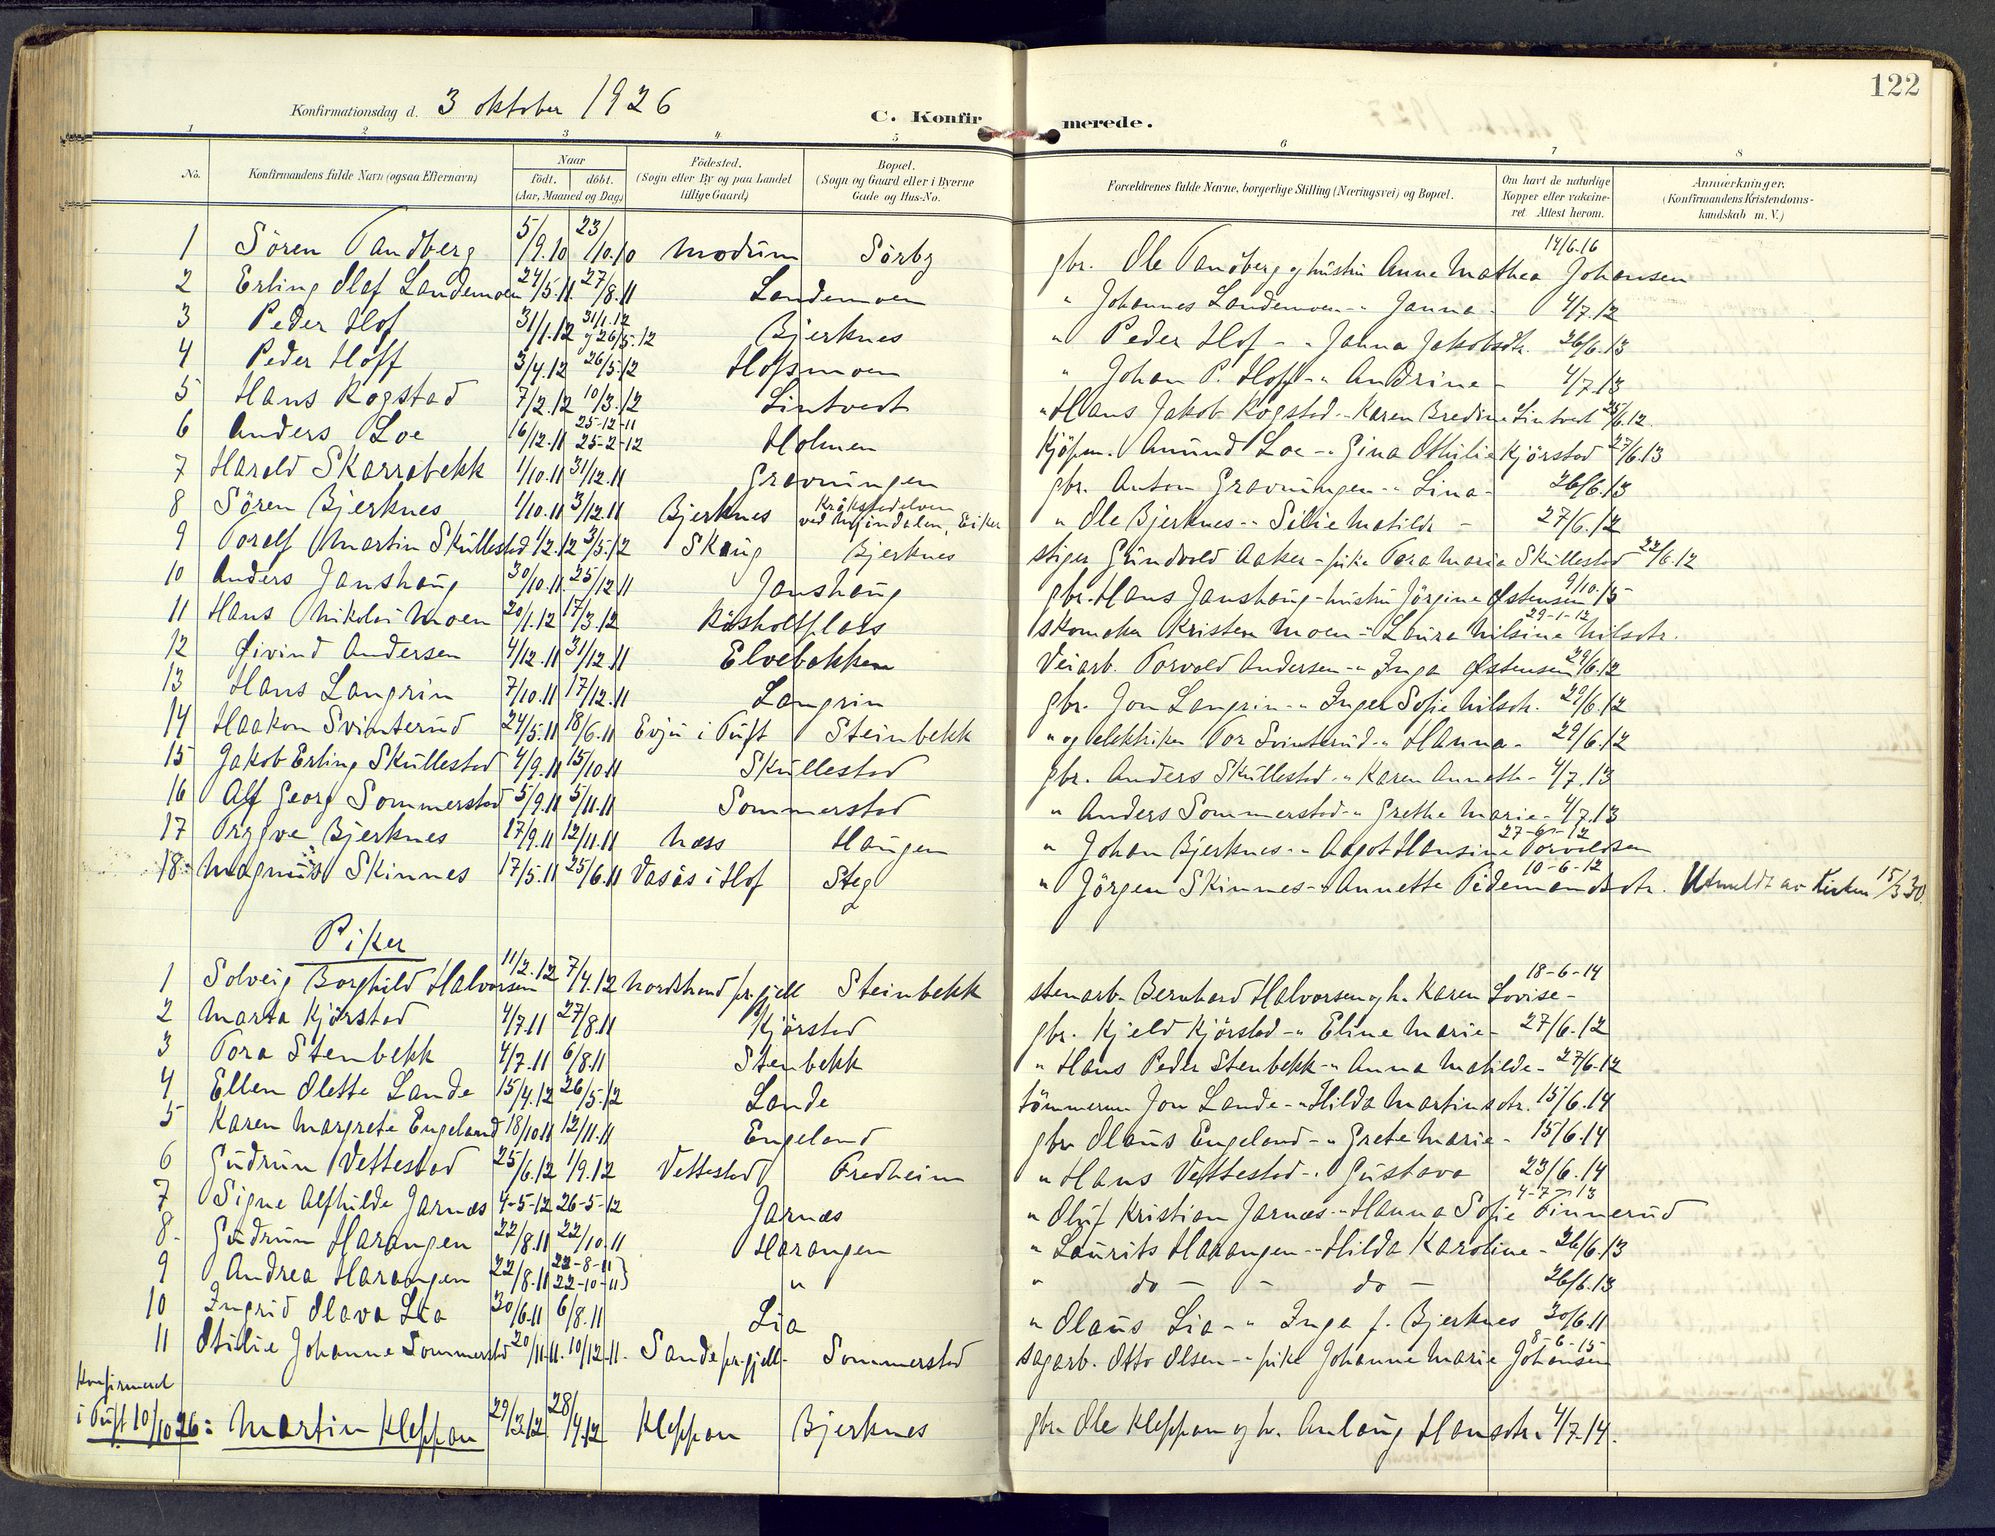 122
Konfirmationsdag d. 3 oktober 1926
C. Konfirmerede.
1 2 3 4 5 6 7 8
No. Konfirmandens fulde Navn (ogsaa Efternavn) Naar födt. döbt. (Aar, Maaned og Dag) Födested. (Sogn eller By og paa Landet tillige Gaard) Bopæl. (Sogn og Gaard eller i Byerne Gade og Hus-No. Forældrenes fulde Navne, borgerlige Stilling (Næringsvei) og Bopæl. Om havt de naturlige Kopper eller vakcineret Attest herom. Anmærkninger. (Konfirmandens Kristendomskundskab m. V.)
1 Sören Tandberg 5/9.10 23/10.10 Modum Sörby gbr. Ole Tandberg og hustru Anne Mathea Johansen 14/6.16
2 Erling Olaf Landemoen 24/5.11. 27/8.11 Landemoen " Johannes Landemoen - " Janna - 4/7.12
3 Peder Hof 31/1.12 31/1.12 og 26/5.12 Bjerknes " Peder Hof - " Janna Jakobsdtr. 26/6.13
4 Peder Hoff 3/4.12 26/5.12 Hofsmoen " Johan P. Hoff - " Andrine - 4/7.13
5 Hans Rogstad 7/2.12 10/3.12 Lintvedt " Hans Jakob Rogstad - Karen Bredine Lintvedt 25/6.12.
6 Anders Loe 16/12.11 25-12-11 25-2-12 Holmen Kjöpm. Amund Loe - " Gina Othilie Kjörstad 27/6.13
7 Harald Skarrabekk 1/10.11 31/12.11 Gravningen gbr. Anton Gravningen - " Lina - 26/6.13
8 Sören Bjerknes 1/10.11 3/12.11 Bjerknes Krokstadelven ved Mjöndalen, Eiker " Ole Bjerknes - " Sillie Matilde - 27/6.12
9 Toralf Martin Skullestad 1/2.12 3/5.12 Skaug Bjerknes stiger Gundvald Aaker - pike Tora Maria Skullestad 22/6.12
10 Anders Janshaug 30/10.11. 25/12 11 Janshaug gbr. Hans Janshaug - hustru Jörgine Østensen 9/10.15
11 Hans Nikolai Moen 20/1.12 17/3.12 Råsholtplass skomaker Kristen Moen - " Laura Nilsine Nilsdtr. 29-1-12
12 Øivind Andersen 4/12.11 31/12.11 Elvebakken Veiarb. Torvald Andersen - " Inga Østensen 29/6.12
13 Hans Langrin 7/10.11 17/12.11 Langrin gbr. Jon Langrin - " Inger Sofie Nilsdtr. 29/6.12
14 Haakon Svinterud 24/5.11 18/6.11 Evju i Tuft Steinbekk " og elektriker Tor Svinterud - " Hanna - 29/6.12
15 Jakob Erling Skullestad 4/9.11 15/10.11 Skullestad gbr. Anders Skullestad - " Karen Annette - 4/7.13
16 Alf Georg Sommerstad 5/9.11 5/11.11 Sommerstad " Anders Sommerstad - " Grethe Marie - 4/7.13
17 Trygve Bjerknes 17/9.11 12/11.11 Næss Haugen " Johan Bjerknes - " Aagot Hansine Torvildsen 27-6-12
18 Magnus Skinnes 17/5.11 25/6.11 Vasås i Hof Steg " Jörgen Skinnes - " Annette Pedersdtr. 10-6-12 Utmeldt av Kirken 15/3 30.
Piker
1 Solveig Borghild Halvorsen 11/2.12 7/4.12 Nordstrand pr. gjell Steinbekk stenarb. Bernhard Halvorsen og h. Karen Lovise - 18-6-14
2 Marta Kjörstad 4/7.11 27/8.11 Kjörstad gbr. Kjeld Kjörstad - " Eline Marie - 27/6.12
3 Tora Stenbekk 4/7.11 6/8.11 Stenbekk " Hans Peder Stenbekk - " Anna Matilde - 27/6.12
4 Ellen Olette Lande 15/4.12 26/5.12 Lande tömmerm Jon Lande - " Hilda Martinsdtr. 15/6.14
5 Karen Margrete Engeland 18/10.11 12/11.11 Engeland gbr Olaus Engeland - " Grete Marie - 15/6.14
6 Gudrun Vettestad 25/6.12 1/9.12 Vettestad Fredheim " Hans Vettestad - " Gustava 23/6.14
7 Signe Alfhilde Jarnæs 4-5-12 26-5-12 Jarnæs " Oluf Kristian Jarnæs - " Hanna Sofie Finnerud 4-7-13
8. Gudrun Harangen 22/8.11 22/10.11 Harangen " Laurits Harangen - " Hilda Karoline - 26/6.13
9 Andrea Harangen 22/8.11 22-8-11 22-10-11) " " do - - do - 26/6.13
10 Ingrid Olava Lia 30/6.11 6/8.11 Lia " Olaus Lia - " Inga f. Bjerknes 30/6.11
11 Otilie Johanne Sommerstad 20/11.11. 10/12.11. Sande pr. gjell. Sommerstad sagarb. Otto Olsen - " pike Johanne Marie Johansen 8-6-15
Konfirmert
i Tuft 10/10 26: Martin Kleppan 29/3.12. 28/4.12 Kleppan Bjerknes gbr. Ole Kleppan og h. Anlaug Hansdtr. 4/7.14.